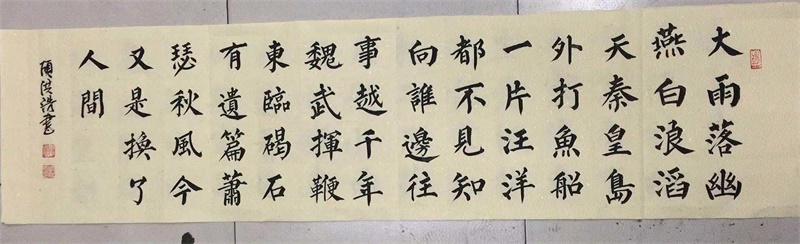 大雨落幽
燕白浪滔
天秦皇島
外打魚船
一片汪洋
都不見知
向誰邊往
事越千年
魏武揮鞭
東臨碣石
有遺篇蕭
瑟秋風今
又是換了
人間
書